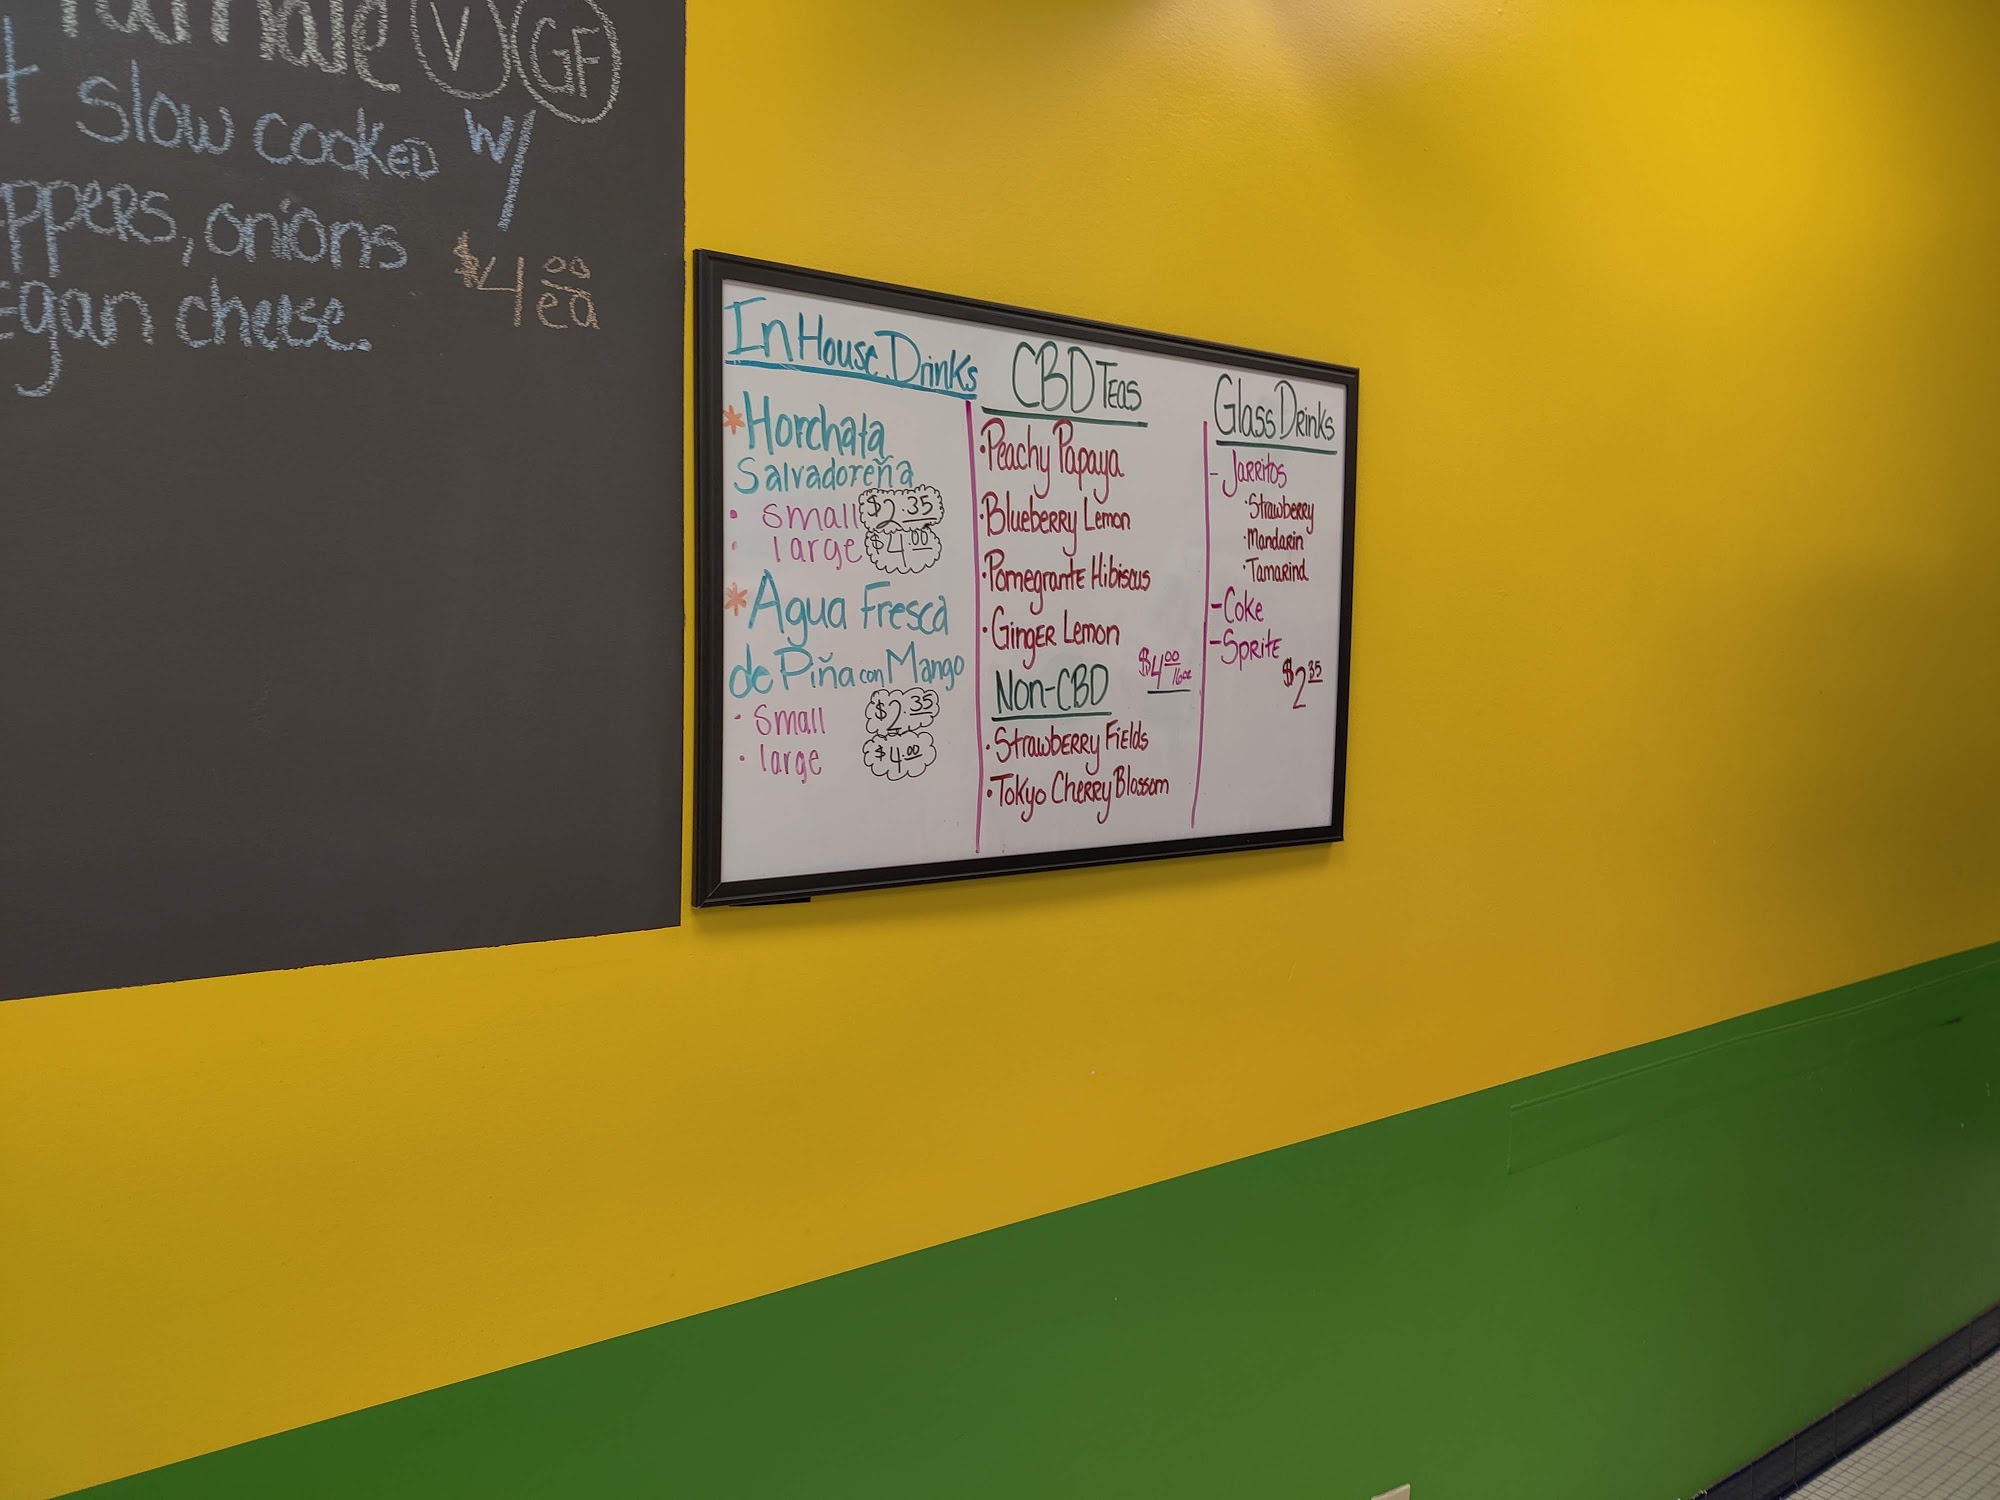 V GF
slow cooked w/
onions
cheese.
$4.00 ea
In House Drinks
*Horchata
Salvadoreña
• small $2.35
• large $4.00
*Agua Fresca
de Piña con Mango
• small $2.35
• large $4.00
CBD Teas
• Peachy Papaya
• Blueberry Lemon
• Pomegrante Hibiscus
• Ginger Lemon
$4.00 16oz
Non-CBD
• Strawberry Fields
• Tokyo Cherry Blossom
Glass Drinks
- Jarritos
• Strawberry
• Mandarin
• Tamarind
- Coke
- Sprite
$2.35